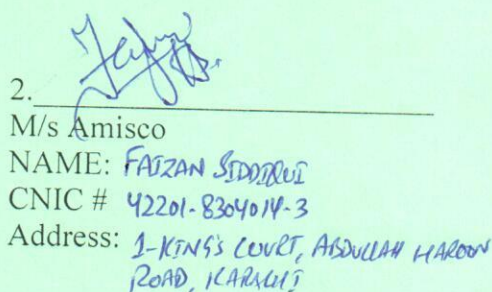 2.
M/s Amisco
NAME: FAIZAN SIDDIQUI
CNIC # 42201-8304014-3
Address: 1-KING'S COURT, ABDULLAH HAROON
ROAD, KARACHI